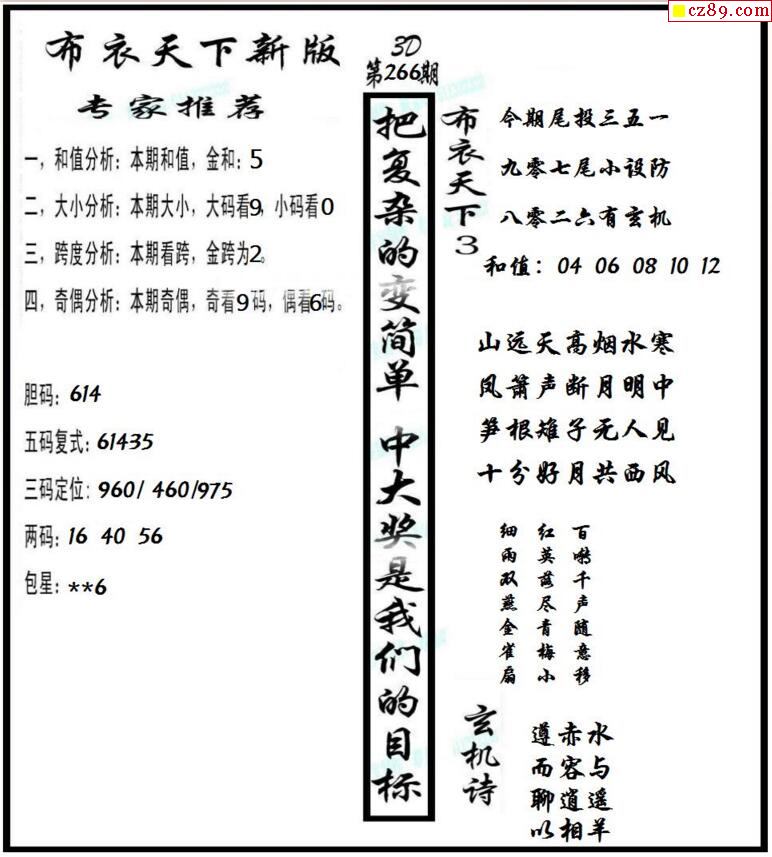 cz89.com
布衣天下新版
专家推荐
一，和值分析：本期和值，金和：5
二，大小分析：本期大小，大码看9，小码看0
三，跨度分析：本期看跨，金跨为2。
四，奇偶分析：本期奇偶，奇看9码，偶看6码。
胆码：614
五码复式：61435
三码定位：960/ 460/975
两码：16 40 56
包星：**6
3D
第266期
把复杂的变简单 中大奖是我们的目标
布衣天下3
今期尾投三五一
九零七尾小设防
八零二六有玄机
和值：04 06 08 10 12
山远天高烟水寒
凤箫声断月明中
笋根雉子无人见
十分好月共西风
百啭千声随意移
红英落尽青梅小
细雨双燕金雀扇
玄机诗
遵赤水
而容与
聊逍遥
以相羊